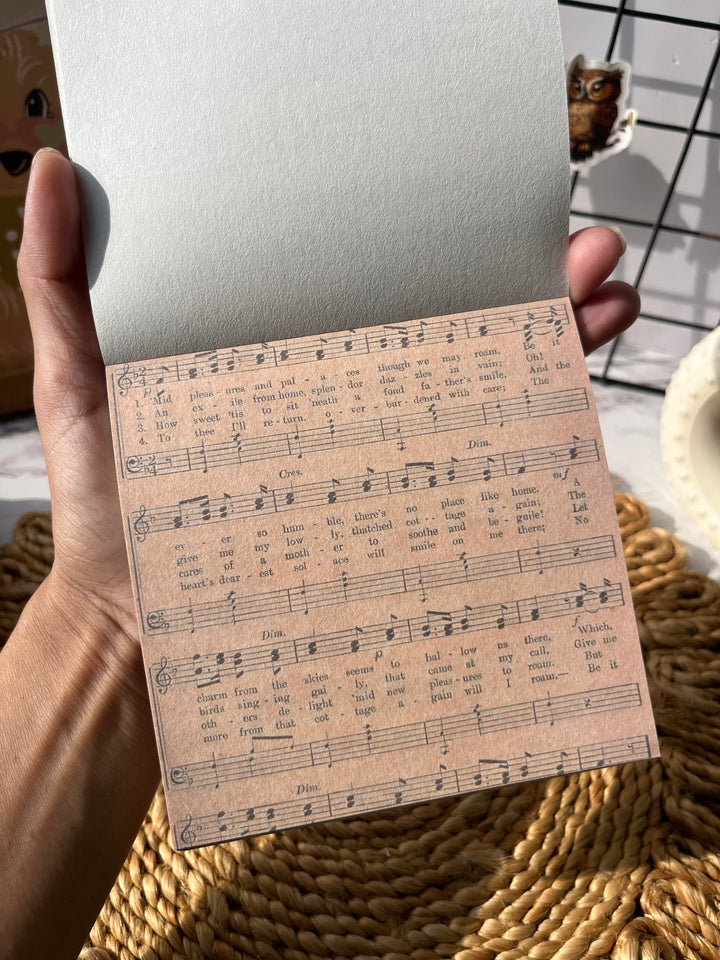 Be it
1. 'Mid pleas - ures and pal - a - ces though we may roam, Oh!
2. An ex - ile from home, splen - dor daz - zles in vain; And the
3. How sweet 'tis to sit 'neath a fond fa - ther's smile, The
4. To thee I'll re - turn, o - ver - bur - dened with care;
Dim.
Cres.
mf
ev - er so hum - ble, there's no place like home. A
give me my low - ly, thatched cot - tage a - gain; The
cares of a moth - er to soothe and be - guile! Let
heart's dear - est sol - ace will smile on me there; No
Dim.
p
f
charm from the skies seems to hal - low us there, Which,
birds sing - ing gai - ly, that came at my call, Give me
oth - ers de - light 'mid new pleas - ures to roam, But
more from that cot - tage a - gain will I roam,— Be it
Dim.